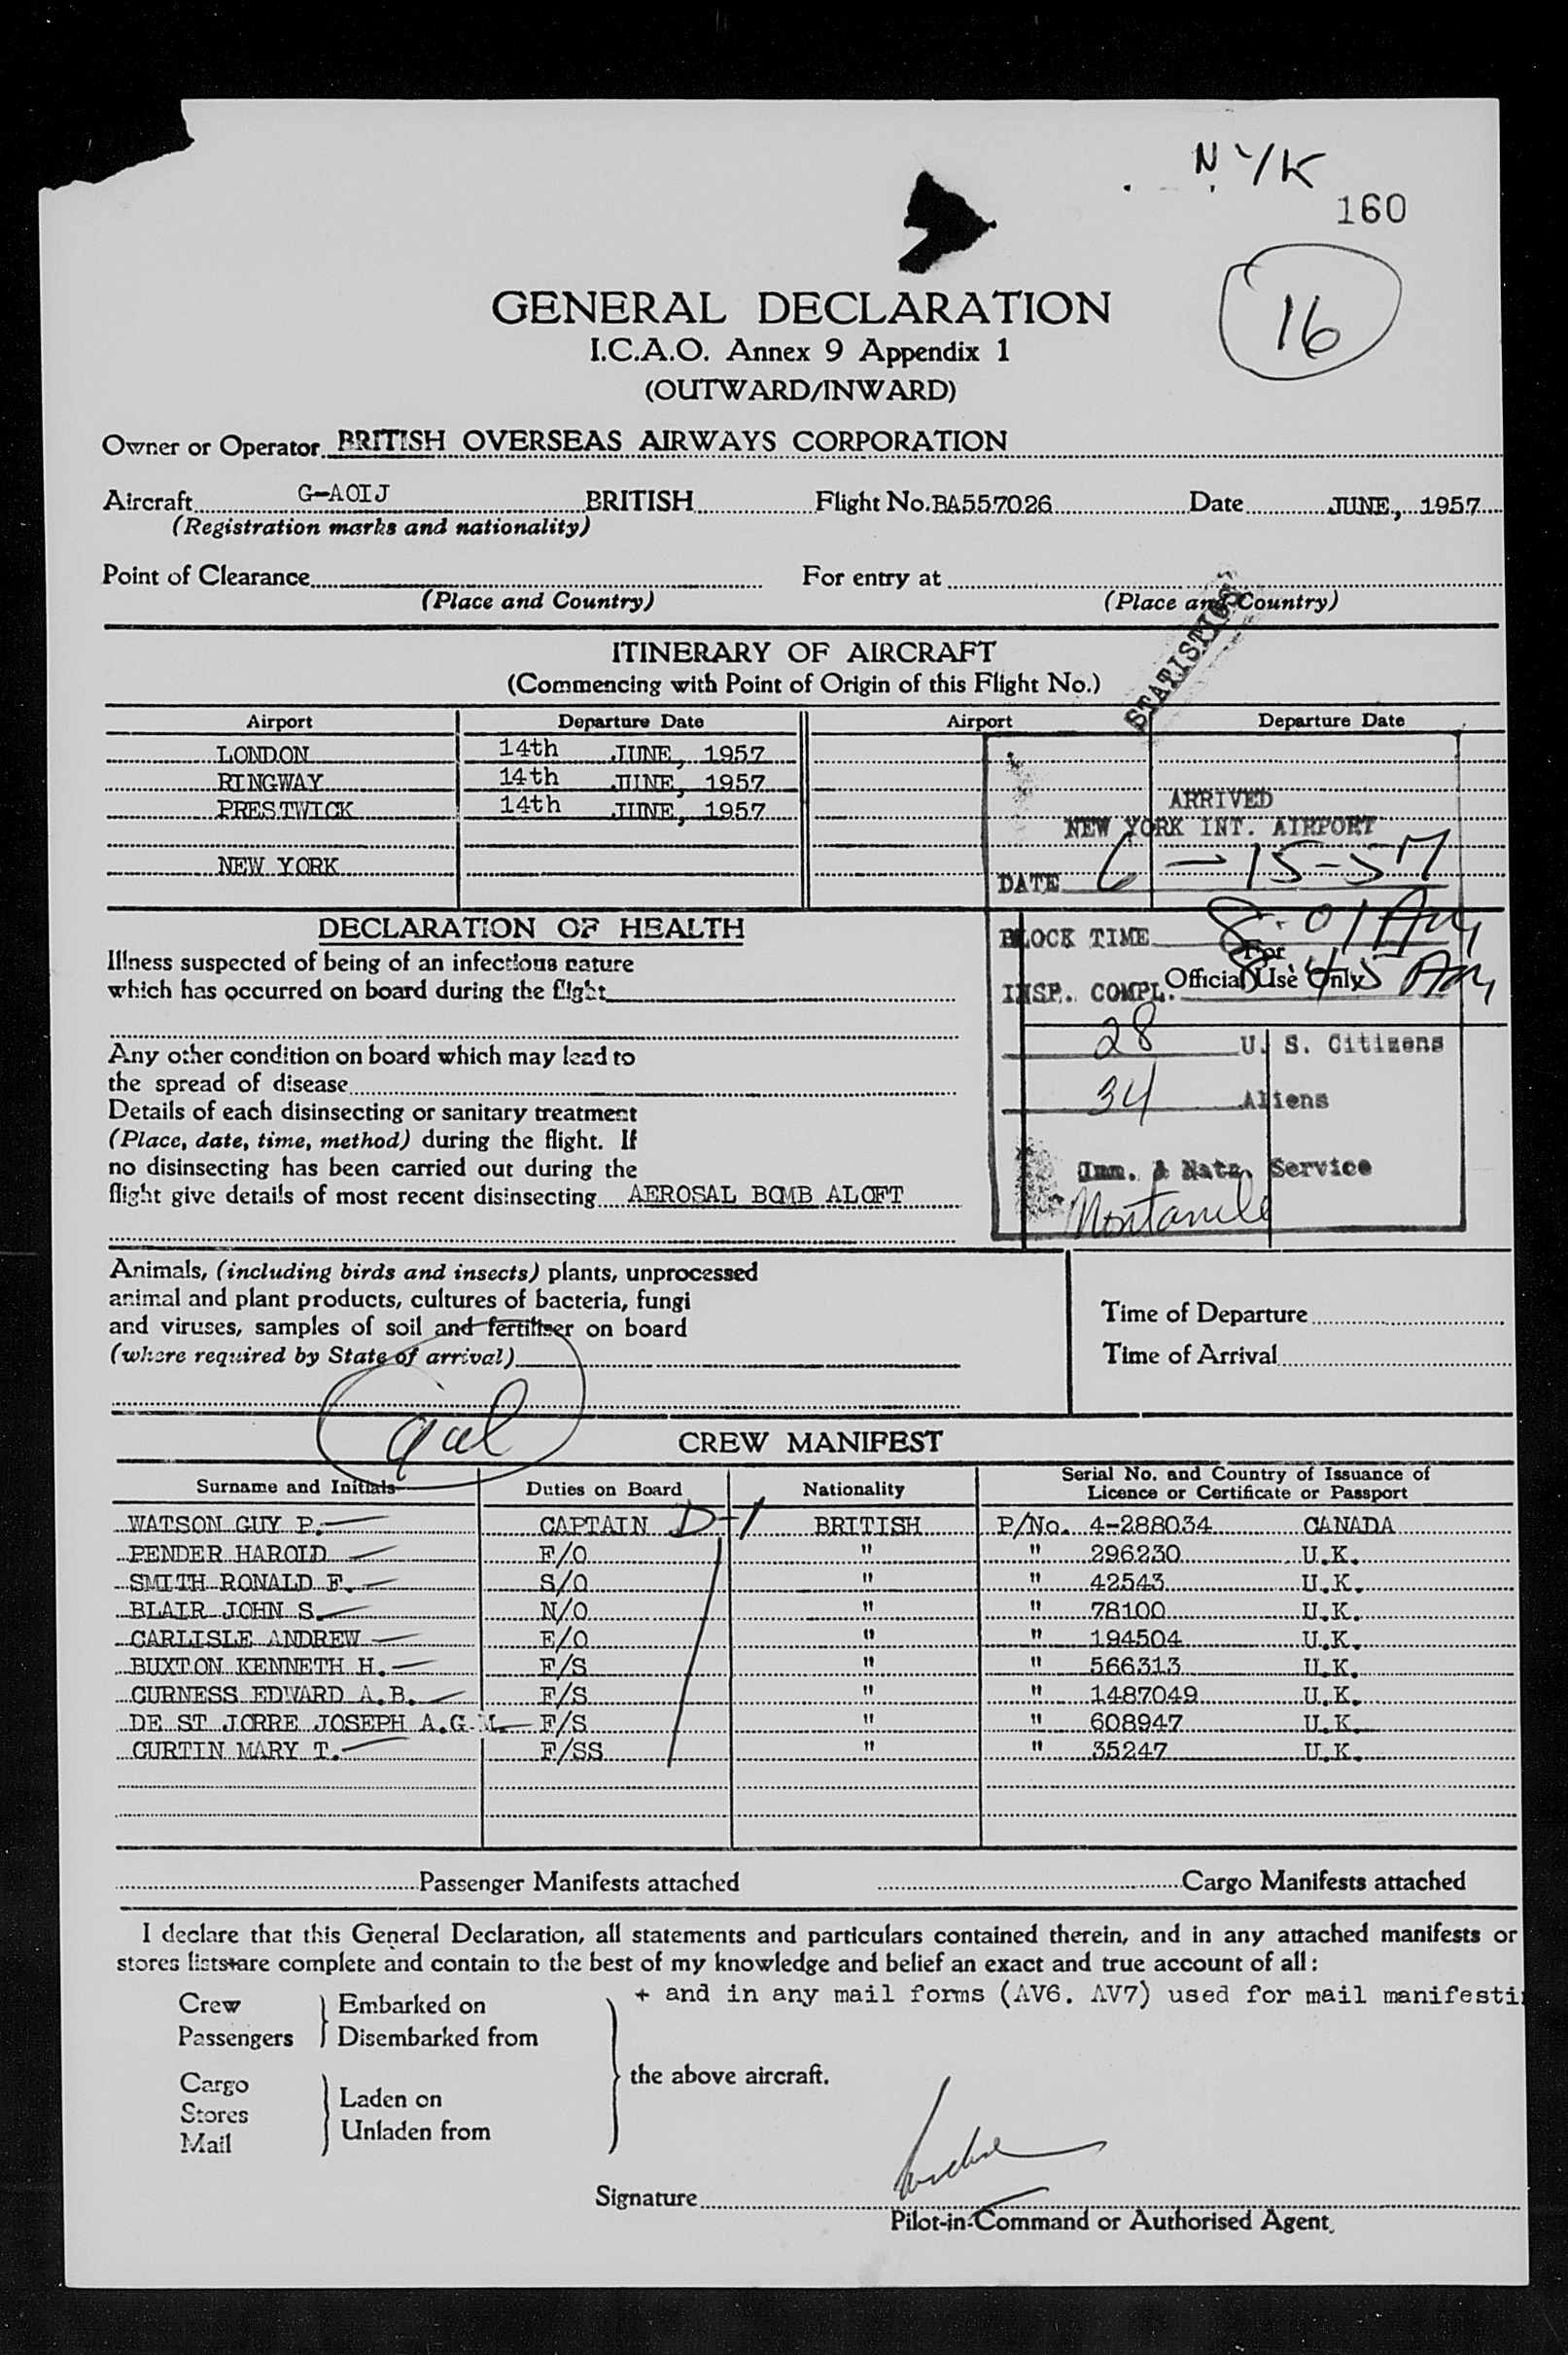 N Y/K
160
16
GENERAL DECLARATION
I.C.A.O. Annex 9 Appendix 1
(OUTWARD/INWARD)
Owner or Operator BRITISH OVERSEAS AIRWAYS CORPORATION
Aircraft G-AOIJ BRITISH Flight No. BA557026 Date JUNE, 1957
(Registration marks and nationality)
Point of Clearance For entry at
(Place and Country) (Place and Country)
STATISTICS
ITINERARY OF AIRCRAFT
(Commencing with Point of Origin of this Flight No.)
Airport Departure Date Airport Departure Date
LONDON 14th JUNE, 1957
RINGWAY 14th JUNE, 1957
PRESTWICK 14th JUNE, 1957
NEW YORK
ARRIVED
NEW YORK INT. AIRPORT
DATE 6-15-57
BLOCK TIME 8:01 Am
For
Official Use Only
INSP. COMPL. 8:45 Am
28 U. S. Citizens
34 Aliens
Imm. & Natz. Service
DECLARATION OF HEALTH
Illness suspected of being of an infectious nature
which has occurred on board during the flight
Any other condition on board which may lead to
the spread of disease
Details of each disinsecting or sanitary treatment
(Place, date, time, method) during the flight. If
no disinsecting has been carried out during the
flight give details of most recent disinsecting AEROSAL BOMB ALOFT
Animals, (including birds and insects) plants, unprocessed
animal and plant products, cultures of bacteria, fungi
and viruses, samples of soil and fertiliser on board
(where required by State of arrival)
Time of Departure
Time of Arrival
CREW MANIFEST
Surname and Initials Duties on Board Nationality Serial No. and Country of Issuance of
Licence or Certificate or Passport
WATSON GUY P. CAPTAIN D-1 BRITISH P/No. 4-288034 CANADA
PENDER HAROLD F/O " " 296230 U.K.
SMITH RONALD F. S/O " " 42543 U.K.
BLAIR JOHN S. N/O " " 78100 U.K.
CARLISLE ANDREW E/O " " 194504 U.K.
BUXTON KENNETH H. F/S " " 566313 U.K.
CURNESS EDWARD A.B. F/S " " 1487049 U.K.
DE ST JORRE JOSEPH A.G.M. F/S " " 608947 U.K.
CURTIN MARY T. F/SS " " 35247 U.K.
Passenger Manifests attached Cargo Manifests attached
I declare that this General Declaration, all statements and particulars contained therein, and in any attached manifests or
stores lists+are complete and contain to the best of my knowledge and belief an exact and true account of all:
+ and in any mail forms (AV6. AV7) used for mail manifesti
Crew Embarked on
Passengers Disembarked from
the above aircraft.
Cargo
Stores Laden on
Mail Unladen from
Signature
Pilot-in-Command or Authorised Agent.